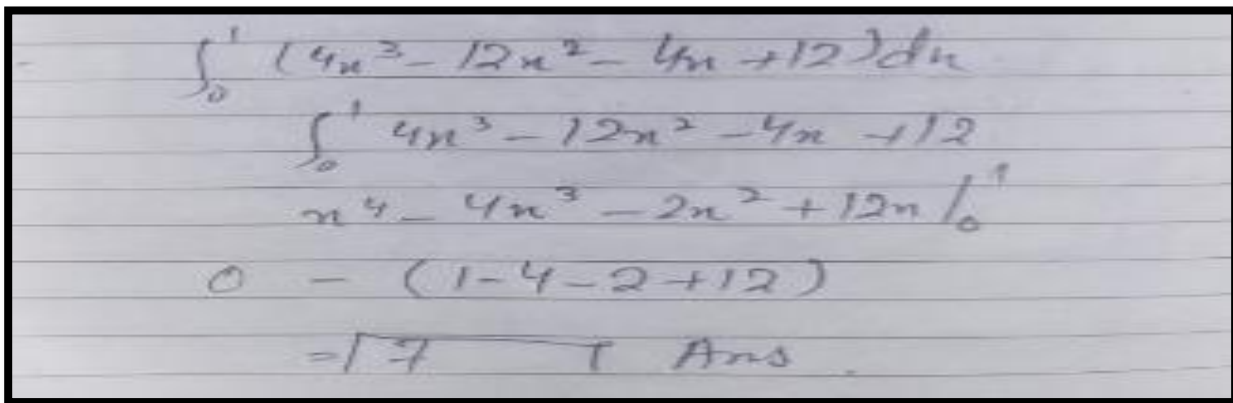 ∫₀¹ (4x³ - 12x² - 4x + 12) dx
∫₀¹ 4x³ - 12x² - 4x + 12
x⁴ - 4x³ - 2x² + 12x |₀¹
0 - (1 - 4 - 2 + 12)
= 7 Ans.